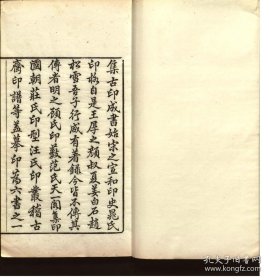 集古印成書始宋之宣和印史晁氏
印格自是王厚之顏叔夏姜白石趙
松雪吾子行咸有著錄今皆不傳其
傳者明之顧氏印藪范氏天一閣印
國朝莊氏印型汪氏印叢稽古
齋印譜等蓋摹印為六書之一